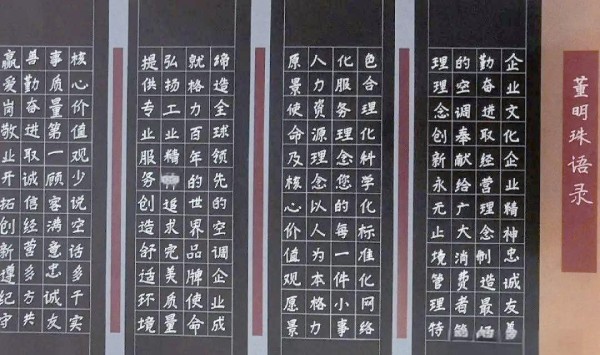 董明珠语录
企业文化企业精神忠诚友善
勤奋进取经营理念制造最
的空调奉献给广大消费者
理理念创新永无止境管理特
色合理化科学化标准化网络
化服务理念您的每一件小事
人力资源理念以人为本格力
原景使命及核心价值观愿景
缔造全球领先的空调企业成
就格力百年的世界品牌使命
弘扬工业精追求完美质量
提供专业服务创造舒适环境
核心价值观少说空话多干实
事质量第一顾客满意忠诚友
善勤奋进取诚信经营多方共
赢爱岗敬业开拓创新遵纪守